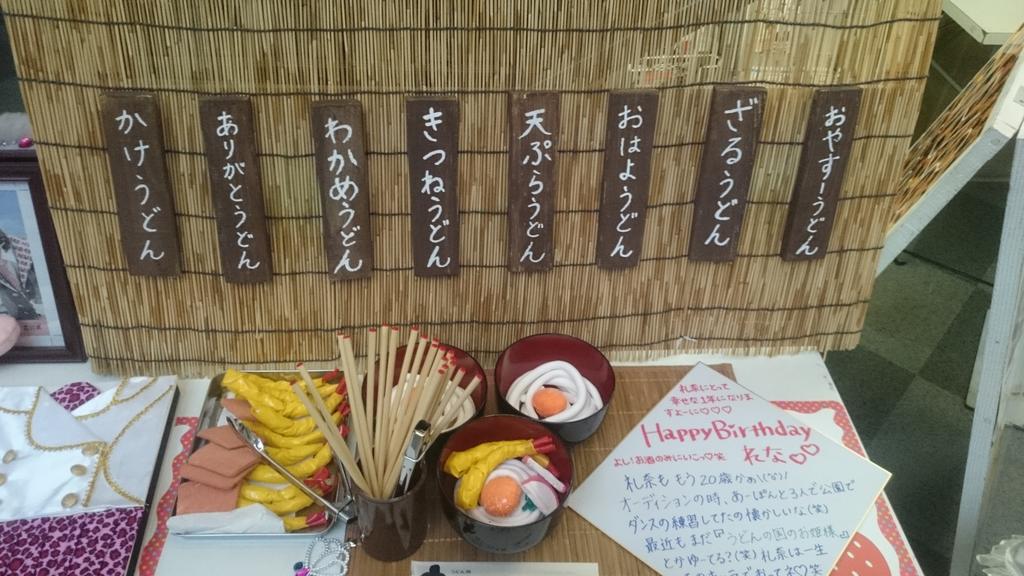 かけうどん
ありがとうどん
わかめうどん
きつねうどん
天ぷらうどん
おはようどん
ざるうどん
おやすーうどん
札奈にとって
幸せな1年になりま
すよーに♡♡♡
HappyBirthday
れな♡♡
よし!お酒のみにいこっ♡笑
札奈ももう20歳かぁ!
オーディションの時、あーぽんと3人で公園で
ダンスの練習してたの懐かしいな(笑)
最近もまだ『うどんの国のお姫様』
とかゆってる?(笑)札奈は一生